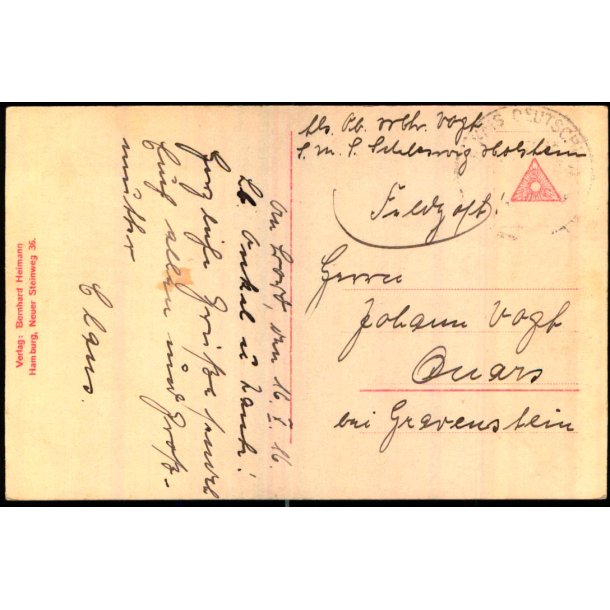 An Bord, den 16. I. 16.
Lb. Onkel u Tante!
Herzliche Grüße sendet
Euch allen und Groß-
mutter
Claus.
Abs. Ob. Vogt
S. M. S. Schleswig Holstein
Feldpost!
Herrn
Johann Vogt
Quars
bei Gravenstein
DEUTSCH
Verlag: Bernhard Heimann
Hamburg, Neuer Steinweg 36.